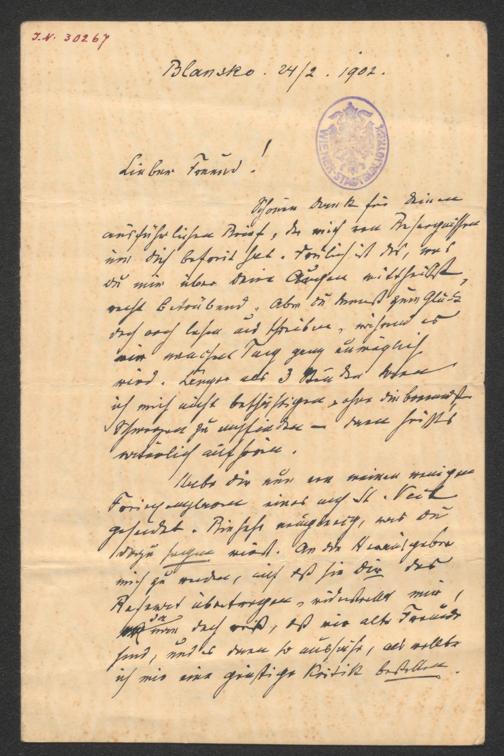 I.N. 30267
Blansko. 24/2. 1902.
Lieber Freund!
Schönen Dank für Deinen
ausführlichen Brief, der mich von Besorgnissen
um Dich befreit hat. Freilich ist das, was
Du mir über Deine Augen mittheilst,
recht betrübend. Aber Du kannst zum Glück
doch noch lesen und schreiben, während es
mir manchen Tag ganz unmöglich
wird. Länger als 3 Stunden kann
ich mich nicht beschäftigen, ohne die
Schmerzen zu empfinden — dann heißts
natürlich aufhören.
Habe Dir nur von meinen wenigen
eines nach St. Veit
gesendet. Bin sehr neugierig, was Du
dazu sagen wirst. An die Herausgeber
mich zu wenden, auf daß sie Dir das
Referat übertragen, widerstrebt mir,
da man doch weiß, daß wir alte Freunde
sind, und es dann so aussähe, als wollte
ich mir eine günstige Kritik bestellen.